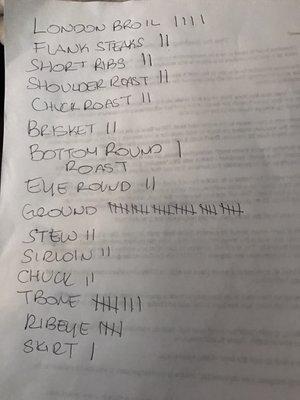 LONDON BROIL ||||
FLANK STEAKS ||
SHORT RIBS ||
SHOULDER ROAST ||
CHUCK ROAST ||
BRISKET ||
BOTTOM ROUND |
ROAST
EYE ROUND ||
GROUND
STEW ||
SIRLOIN ||
CHUCK ||
TBONE 卌|||
RIBEYE 卌
SKIRT |